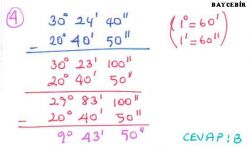 BAYCEBİR
4
30° 24' 40''
- 20° 40' 50''
(1° = 60'
(1' = 60'')
30° 23' 100''
20° 40' 50''
29° 83' 100''
- 20° 40' 50''
9° 43' 50''
CEVAP: B